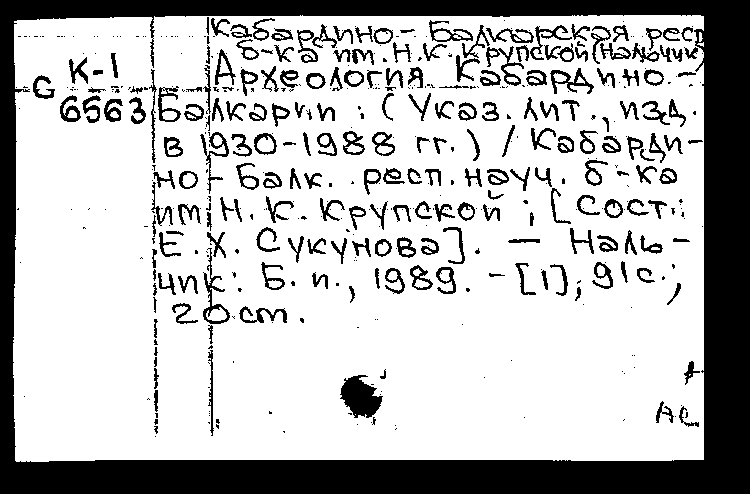 Кабардино-Балкарская респ
б-ка им. Н.К. Крупской (Нальчик)
К-1
G
6563
Археология Кабардино-
Балкарии : (Указ. лит., изд.
в 1930-1988 гг.) / Кабарди-
но-Балк. респ. науч. б-ка
им. Н. К. Крупской ; [Сост.:
Е. Х. Сукунова]. — Наль-
чик : Б. и., 1989. - [1], 91с.;
20 см.
АС